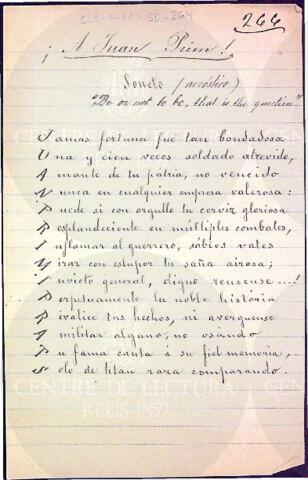 CLR-1-11-SD-264
266
¡ A Juan Prim !
Soneto (acróstico)
"Do or not to be, that is the question"
Jamas fortuna fué tan bondadosa
Una y cien veces soldado atrevido,
Amante de tu patria, no vencido
Nunca en cualquier empresa valerosa:
Puede si con orgullo tu cerviz gloriosa
Resplandeciente en múltiples combates,
Inflamar al guerrero, sábios vates
Mirar con estupor tu saña airosa;
Invicto general, digno reusense...!
Perpetuamente tu noble história
Rivalice tus hechos, ni averguense
A militar alguno; no osándo
Tu fama canta á su fiel memoria,
Solo de titan raza comparando.
CENTRE DE LECTURA
REUS 1859